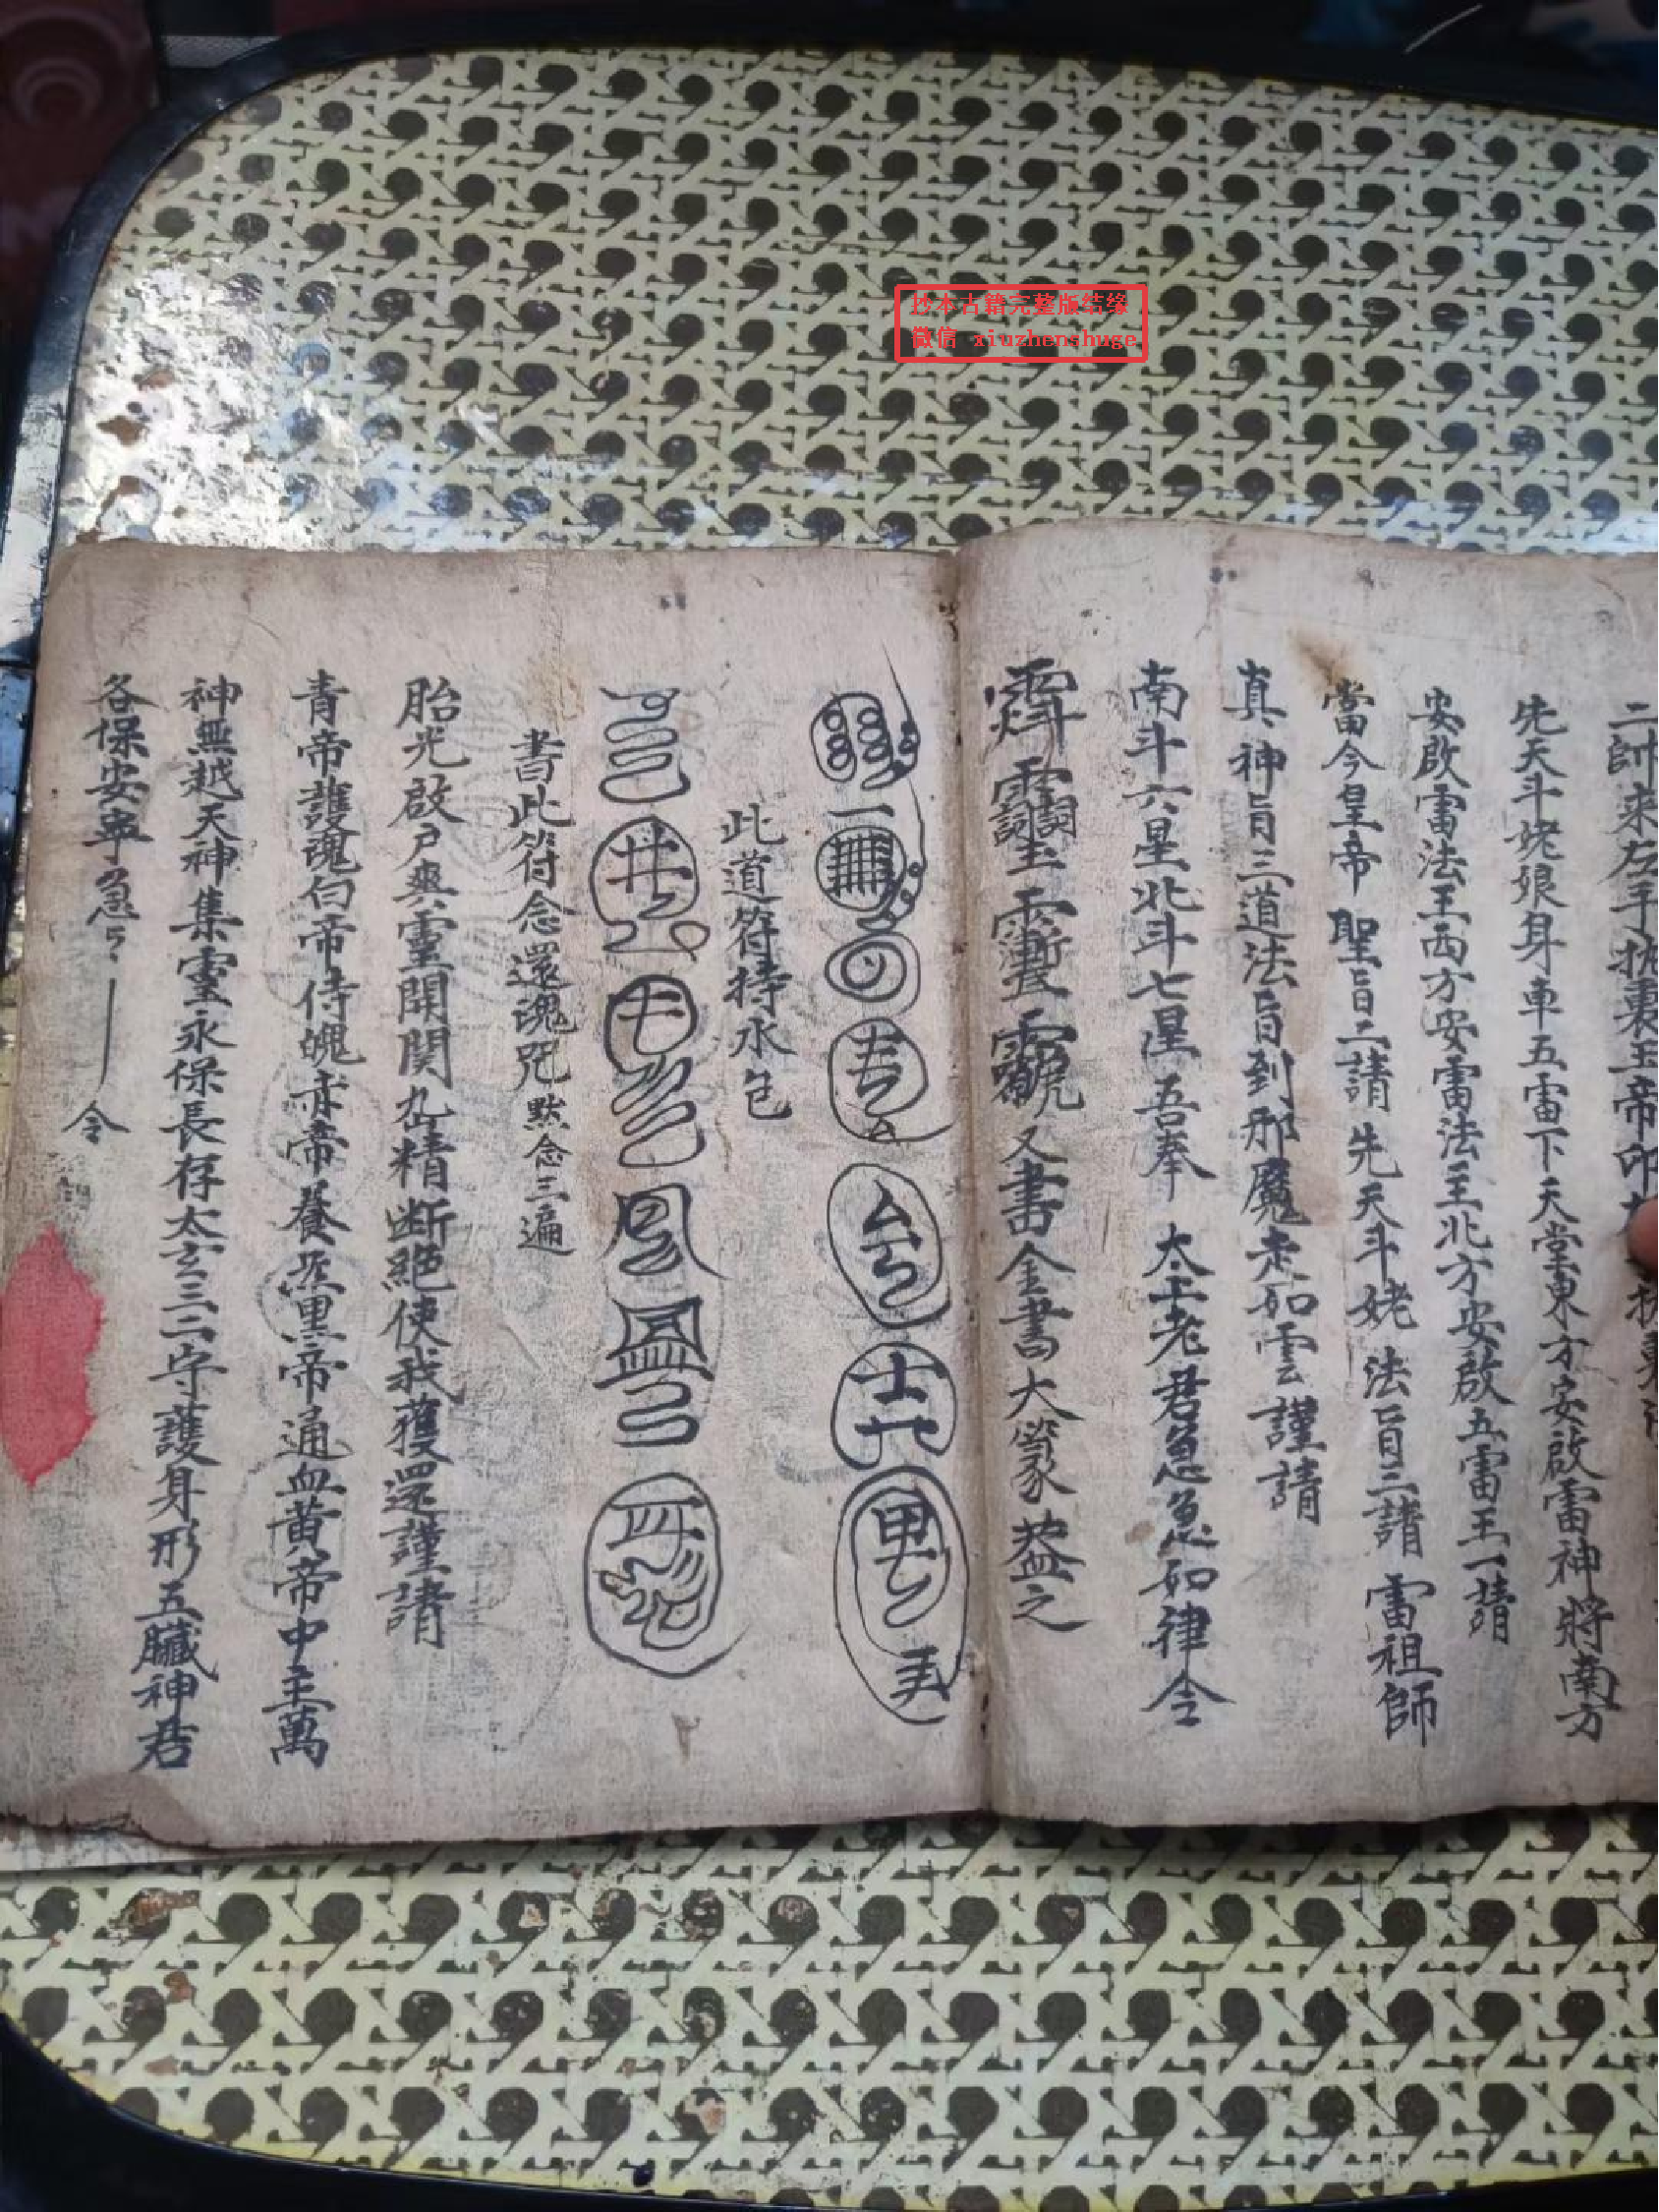 抄本古籍完整版结缘
微信 xiuzhenshuge
二帥来左手执
玉帝印
先天斗姥娘身車五雷下天堂東方安啟雷神將南方
安啟雷法王西方安雷法王北方安啟五雷王一請
當今皇帝聖旨二請先天斗姥法旨三請雷祖師
真神旨三道法旨到那魔走如雲謹請
南斗六星北斗七星吾奉太上老君急急如律令
又書金書大篆盖之
此道符持水包
書此符念還魂咒默念三遍
胎光啟戶爽靈開関九精断絕使我獲還謹請
青帝護魂白帝侍魄赤帝養黑帝通血黄帝中主萬
神無越天神集靈永保長存太玄三一守護身形五臟神君
各保安寧急
令